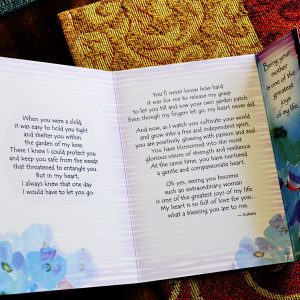 When you were a child,
it was easy to hold you tight
and shelter you within
the garden of my love.
There I knew I could protect you
and keep you safe from the weeds
that threatened to entangle you.
But in my heart,
I always knew that one day
I would have to let you go.
You'll never know how hard
it was for me to release my grasp
to let you till and sow your own garden patch.
Even though my fingers let go, my heart never did.
And now, as I watch you cultivate your world
and grow into a free and independent spirit,
you are positively glowing with passion and zeal.
You have blossomed into the most
glorious vision of strength and resilience.
At the same time, you have nurtured
a gentle and compassionate heart.
Oh yes, seeing you become
such an extraordinary woman
is one of the greatest joys of my life.
My heart is so full of love for you...
what a blessing you are to me.
Being your
mother
is one of the
greatest
joys
of my life